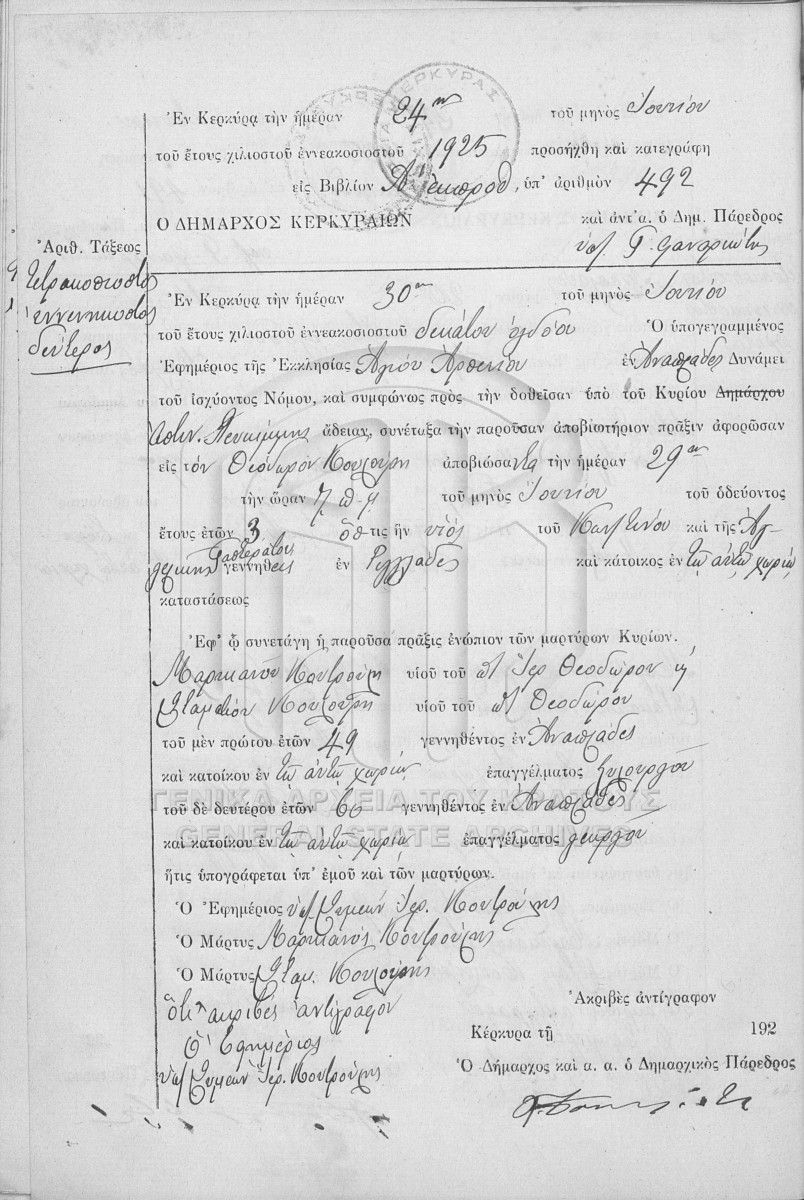 Ἐν Κερκύρᾳ τὴν ἡμέραν 24ην τοῦ μηνὸς Ἰουνίου
τοῦ ἔτους χιλιοστοῦ ἐννεακοσιοστοῦ 1925 προσήχθη καὶ κατεγράφη
εἰς Βιβλίον Ἀ, ὑπ' ἀριθμὸν 492
Ὁ ΔΗΜΑΡΧΟΣ ΚΕΡΚΥΡΑΙΩΝ καὶ ἀντ' α. ὁ Δημ. Πάρεδρος
ὑπ/
Ἀριθ. Τάξεως
Τετρακοσιοστὸς
ἐννενηκοστὸς
δεύτερος
Ἐν Κερκύρᾳ τὴν ἡμέραν 30ην τοῦ μηνὸς Ἰουνίου
τοῦ ἔτους χιλιοστοῦ ἐννεακοσιοστοῦ δεκάτου ὀγδόου Ὁ ὑπογεγραμμένος
Ἐφημέριος τῆς Ἐκκλησίας Ἁγίου Ἀρσενίου ἐν Ἀναπλάδες Δυνάμει
τοῦ ἰσχύοντος Νόμου, καὶ συμφώνως πρὸς τὴν δοθεῖσαν ὑπὸ τοῦ Κυρίου Δημάρχου
ἄδειαν, συνέταξα τὴν παροῦσαν ἀποβιωτήριον πρᾶξιν ἀφορῶσαν
εἰς τὸν Θεόδωρον Κουλούρη ἀποβιώσαντα τὴν ἡμέραν 29ην
τὴν ὥραν 7 π.μ. τοῦ μηνὸς Ἰουνίου τοῦ ὁδεύοντος
ἔτους ἐτῶν 3 ὅστις ἦν υἱὸς τοῦ Κωνστίνου καὶ τῆς Ἀγ
γελικῆς Γαστεράτου γεννηθεὶς ἐν Ριγγλάδες καὶ κάτοικος ἐν τῷ αὐτῷ χωρίῳ
καταστάσεως
Ἐφ' ᾧ συνετάγη ἡ παροῦσα πρᾶξις ἐνώπιον τῶν μαρτύρων Κυρίων.
Μαρκιανοῦ Κουτρούλη υἱοῦ τοῦ ποτ Ἱερ Θεοδώρου κ
Σταματίου Κουλούρη υἱοῦ τοῦ ποτ Θεοδώρου
τοῦ μὲν πρώτου ἐτῶν 49 γεννηθέντος ἐν Ἀναπλάδες
καὶ κατοίκου ἐν τῷ αὐτῷ χωρίῳ ἐπαγγέλματος ξυλουργοῦ
τοῦ δὲ δευτέρου ἐτῶν 60 γεννηθέντος ἐν Ἀναπλάδες
καὶ κατοίκου ἐν τῷ αὐτῷ χωρίῳ ἐπαγγέλματος γεωργοῦ
ἥτις ὑπογράφεται ὑπ' ἐμοῦ καὶ τῶν μαρτύρων.
Ὁ Ἐφημέριος ὑπ/ Συμεὼν Ἱερ. Κουτρούλης
Ὁ Μάρτυς Μαρκιανὸς Κουτρούλης
Ὁ Μάρτυς Σταμ. Κουλούρης
Ὅτι ἀκριβὲς ἀντίγραφον
Ὁ Ἐφημέριος
ὑπ/ Συμεὼν Ἱερ. Κουτρούλης
Ἀκριβὲς ἀντίγραφον
Κέρκυρα τῇ 192
Ὁ Δήμαρχος καὶ α. α. ὁ Δημαρχικὸς Πάρεδρος
ΓΕΝΙΚΑ ΑΡΧΕΙΑ ΤΟΥ ΚΡΑΤΟΥΣ
GENERAL STATE ARCHIVES